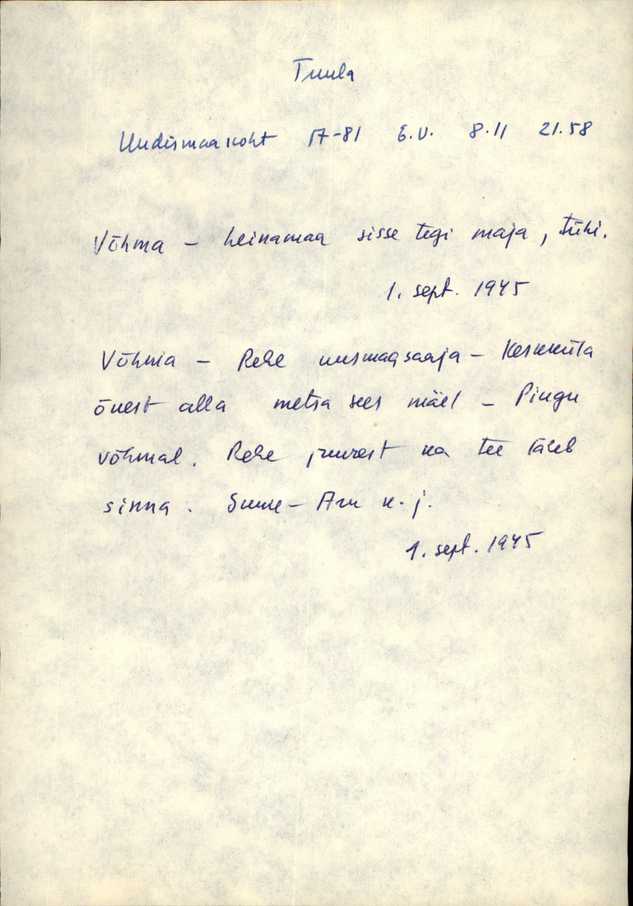 Tuula
Uudismaa koht 17-81 E.V. 8.11 21.58
Võhma – heinamaa sisse tegi maja, tühi.
1. sept. 1945
Võhma – Rehe uusmaasaaja – Keskküla
õuest alla metsa sees mäel – Pingu
võhmal. Rehe juurest ka tee läheb
sinna. Suure-Aru k.j.
1. sept. 1945